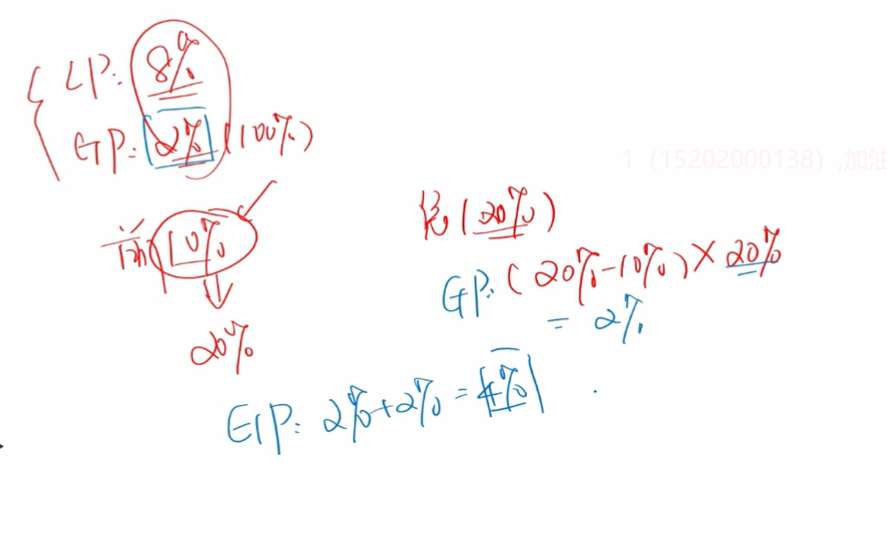 LP: 8%
GP: 2% (100%)
1 (15202000138) ,加油
10%
(20%)
GP: (20%-10%)×20%
= 2%
20%
GP: 2%+2%=4%